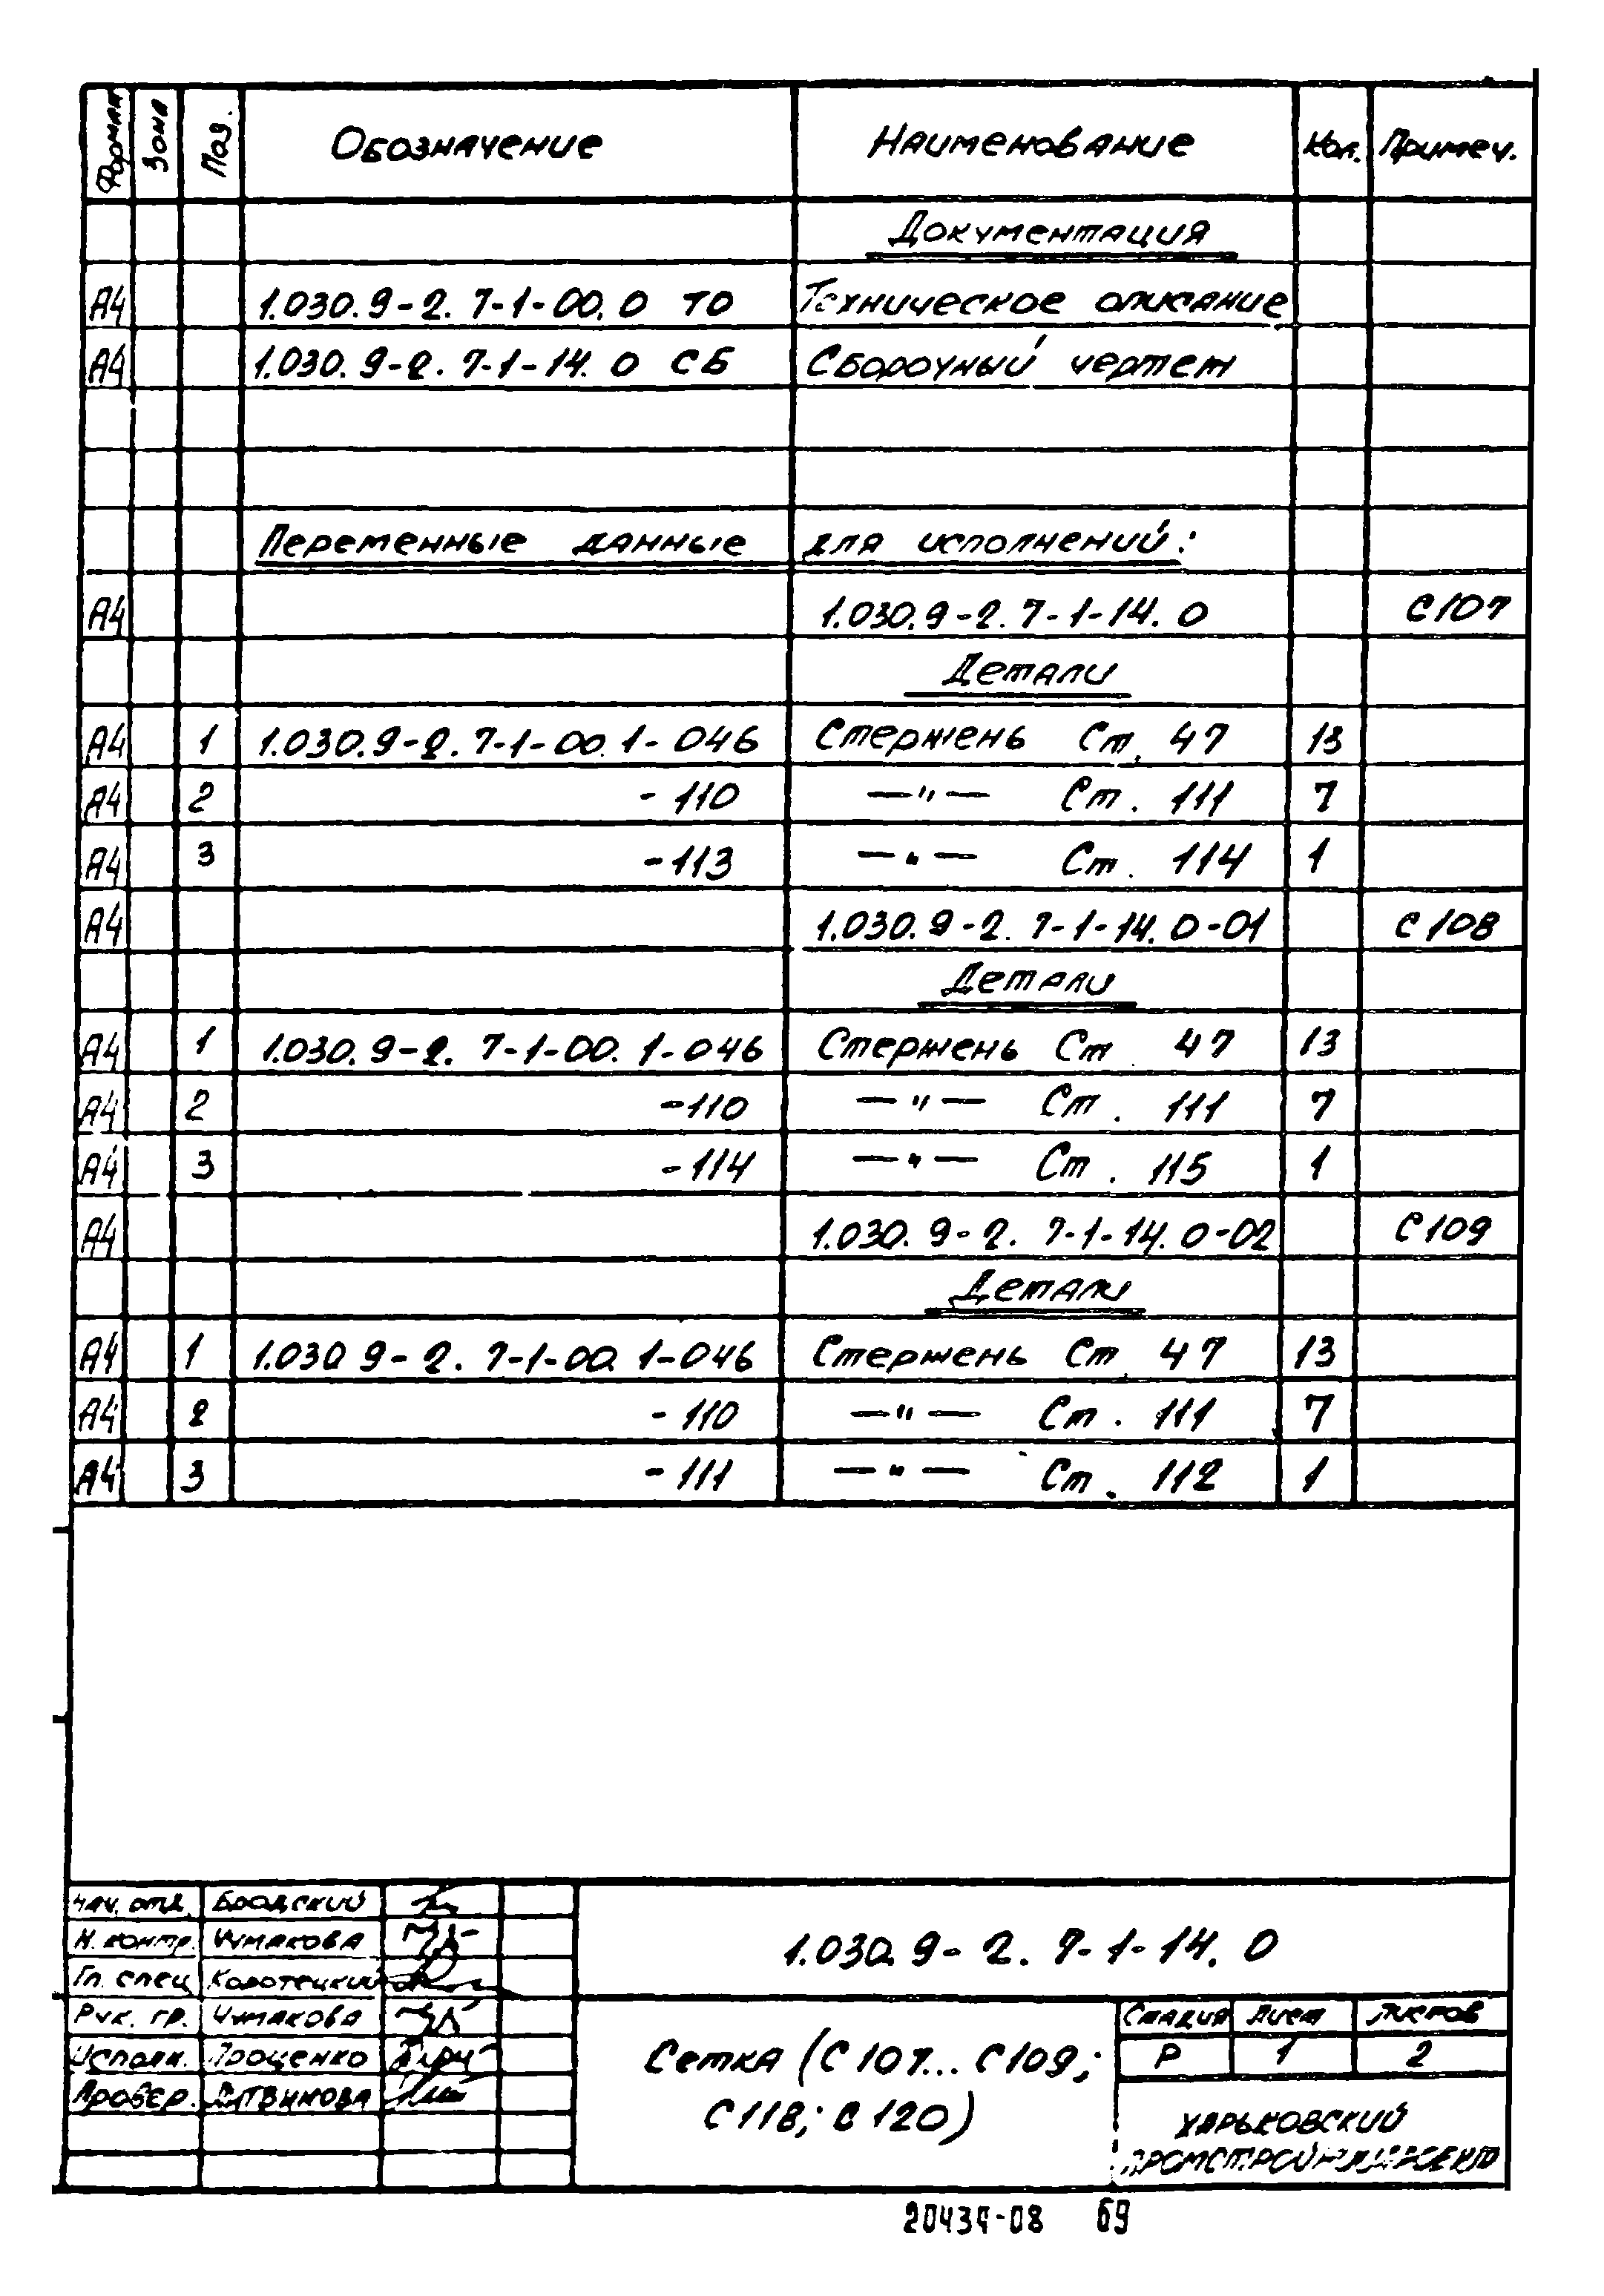 Формат Зона Поз. Обозначение Наименование Кол. Примеч.
Документация
А4 1.030.9-2.7-1-00.0 ТО Техническое описание
А4 1.030.9-2.7-1-14.0 СБ Сборочный чертеж
Переменные данные для исполнений:
А4 1.030.9-2.7-1-14.0 С107
Детали
А4 1 1.030.9-2.7-1-00.1-046 Стержень Ст. 47 13
А4 2 -110 —"— Ст. 111 7
А4 3 -113 —"— Ст. 114 1
А4 1.030.9-2.7-1-14.0-01 С108
Детали
А4 1 1.030.9-2.7-1-00.1-046 Стержень Ст 47 13
А4 2 -110 —"— Ст. 111 7
А4 3 -114 —"— Ст. 115 1
А4 1.030.9-2.7-1-14.0-02 С109
Детали
А4 1 1.030.9-2.7-1-00.1-046 Стержень Ст 47 13
А4 2 -110 —"— Ст. 111 7
А4 3 -111 —"— Ст. 112 1
Нач. отд. Бродский
Н. контр. Чумакова
Гл. спец Коротецкий
Рук. гр. Чумакова
Исполн. Проценко
Провер. Литвинова
1.030.9-2.7-1-14.0
Сетка (С107... С109;
С118; С120)
Стадия Лист Листов
Р 1 2
Харьковский
Промстройниипроект
69